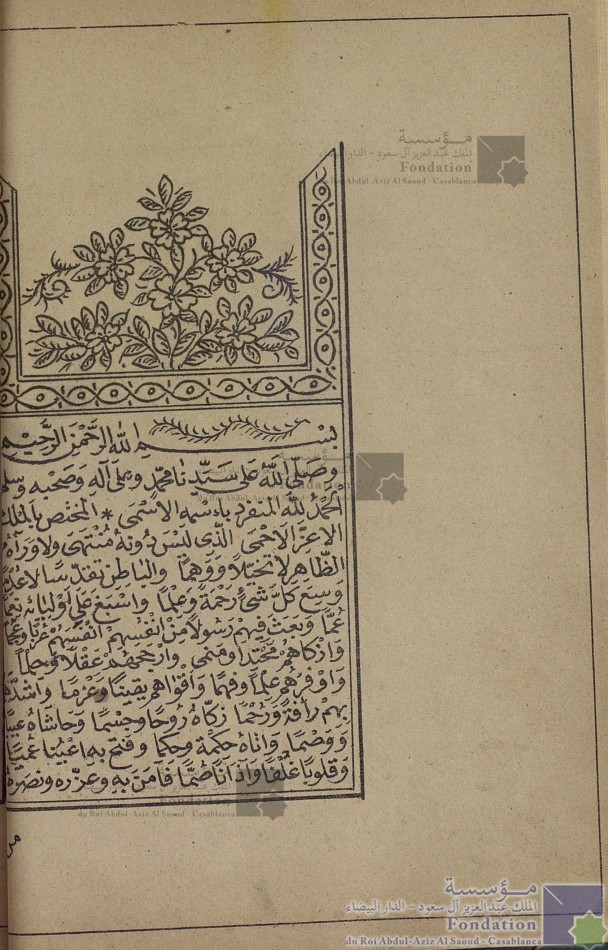 مؤسسة
الملك عبد العزيز آل سعود - الدار البيضاء
Fondation
du Roi Abdul-Aziz Al Saoud - Casablanca
بسم الله الرحمن الرحيم
وصلى الله على سيدنا محمد وعلى آله وصحبه وسلم
الحمد لله المنفرد باسمه الاسمى * المختص بالملك
الاعز الاحمى الذي ليس دونه منتهى ولا وراءه
الظاهر لا تخيلا ووهما والباطن تقدسا لا عدما
وسع كل شيء رحمة وعلما واسبغ على اوليائه نعما
عما وبعث فيهم رسولا من انفسهم انفسهم عربا وعجما
وازكاهم محتدا ومنمى وارجحهم عقلا وحلما
واوفرهم علما وفهما واقواهم يقينا وعزما واشدهم
بهم رأفة ورحما زكاه روحا وجسما وحاشاه عيبا
ووصما وآتاه حكمة وحكما وفتح به اعينا عميا
وقلوبا غلفا وآذانا صما فآمن به وعزره ونصره
من
du Roi Abdul-Aziz Al Saoud - Casablanca
مؤسسة
الملك عبد العزيز آل سعود - الدار البيضاء
Fondation
du Roi Abdul-Aziz Al Saoud - Casablanca